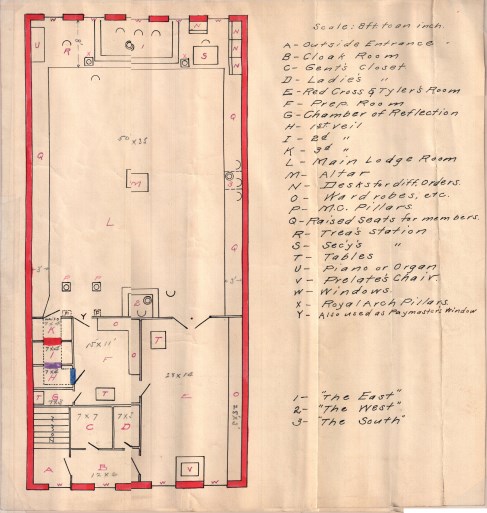 Scale: 8ft. to an inch.
A- Outside Entrance
B- Cloak Room
C- Gent's Closet
D- Ladie's "
E- Red Cross & Tyler's Room
F- Prep. Room
G- Chamber of Reflection
H- 1st Veil
I- 2d "
K- 3d "
L- Main Lodge Room
M- Altar
N- Desks for diff. Orders.
O- Wardrobes, etc.
P- M.C. Pillars.
Q- Raised Seats for members.
R- Treas Station
S- Sec'y's "
T- Tables
U- Piano or Organ
V- Prelate's Chair.
W- Windows
X- Royal Arch Pillars.
Y- Also used as Paymaster's Window
1- "The East"
2- "The West"
3- "The South"
U
R
X
1
X
S
N
N
N
Q
Q
M
L
S
3
Q
Q
P
P
3'
2
Y
K
I
H
G
15 x 11'
F
O
O
T
T
E
O
7 x 7
C
D
A
B
V
W
W
W
W